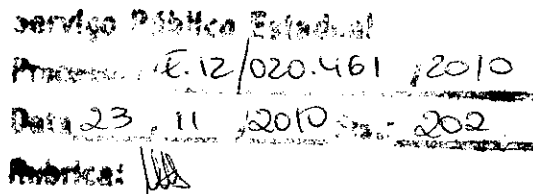 Serviço Público Estadual
Processo: E.12/020.461 /2010
Data 23 / 11 /2010 Fls.: 202
Rubrica: